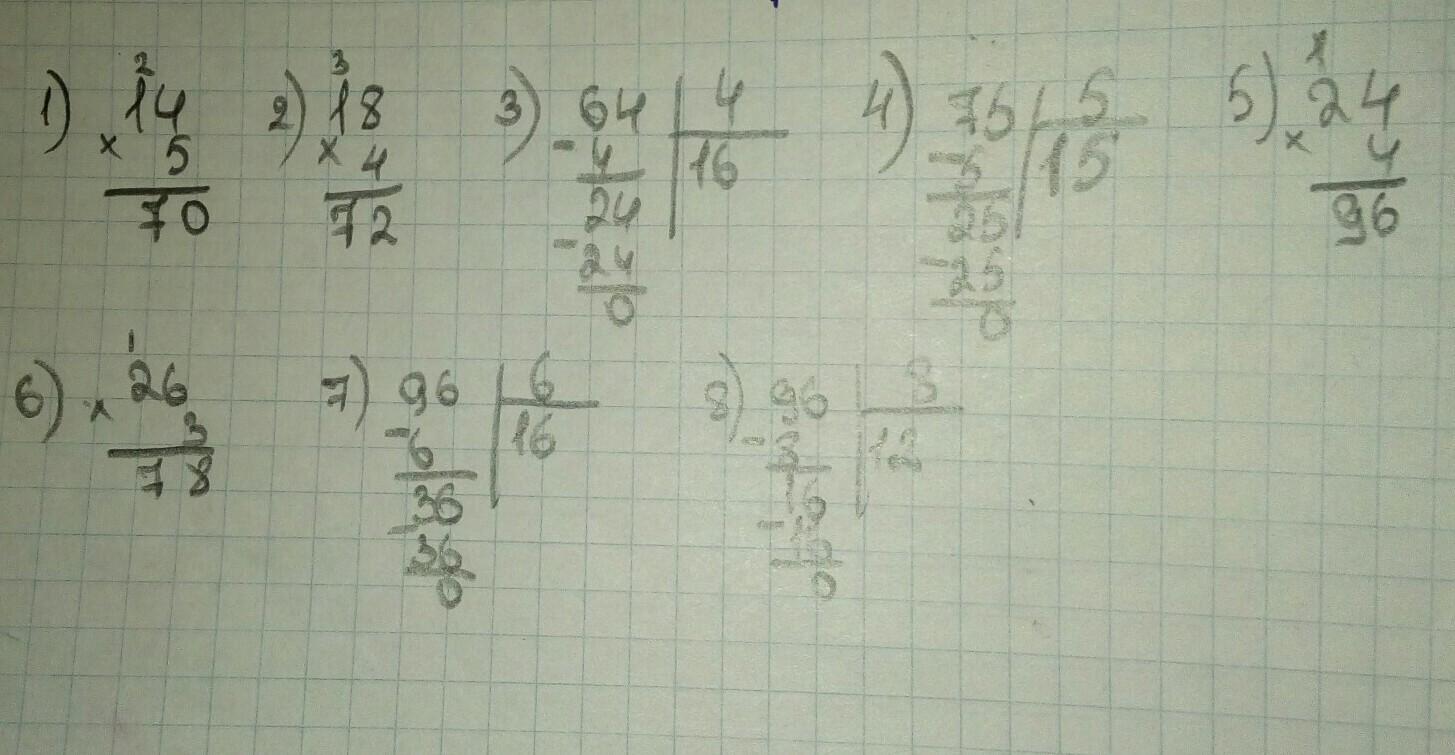 1) 2 2) 3 3) 64 | 4 4) 75 | 5 5) 1
14 18 - 4 | 16 - 5 | 15 24
× 5 × 4 24 25 × 4
70 72 - 24 - 25 96
0 0
6) 1 7) 96 | 6 8) 96 | 8
26 - 6 | 16 - 8 | 12
× 3 36 16
78 - 36 - 16
0 0